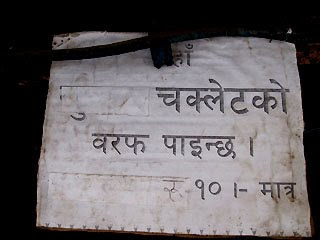 चक्लेटको
वरफ पाइन्छ ।
रु १० ।- मात्र